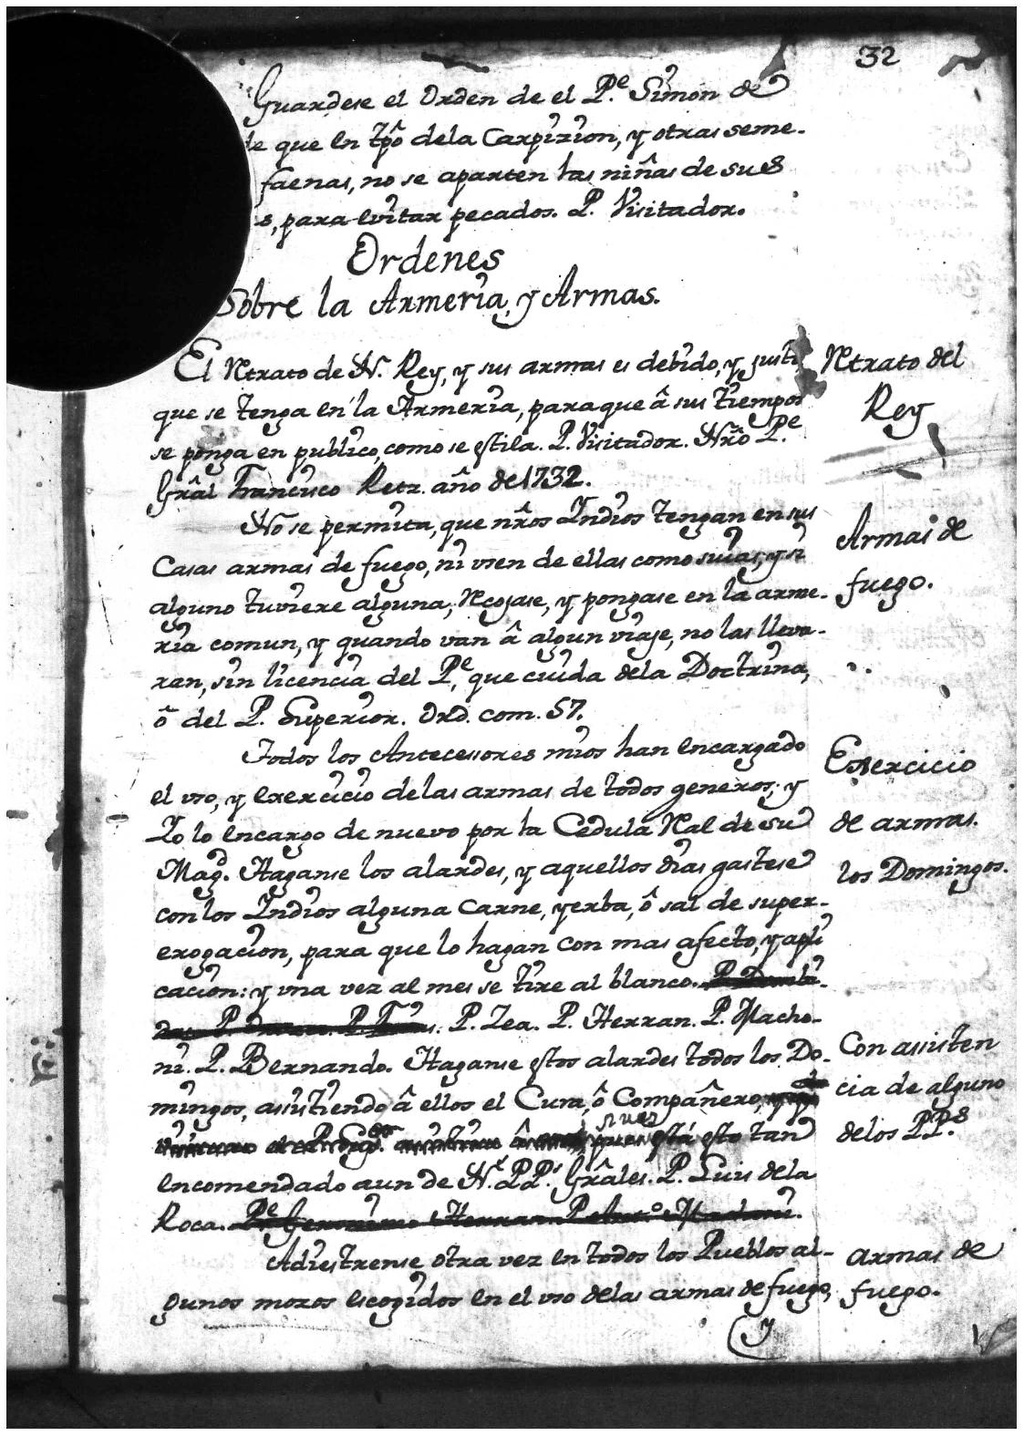 32
Guardese el Orden de el P.e Simon de
que en tpô dela Carpizion, y otras seme-
faenas, no se aparten las niñas de sus
s, para evitar pecados. P. Visitador.
Ordenes
Sobre la Armeria, y Armas.
El Retrato de N. Rey, y sus armas es debido, y justo
que se tenga en la Armeria, para que â sus tiempos
se ponga en publico, como se estila. P. Visitador. Nrô P.e
Grâl Francisco Retz. año de 1732.
Retrato del
Rey
No se permita, que nr̂os Indios tengan en sus
Casas armas de fuego, ni usen de ellas como suias, y si
alguno tuviere alguna, Recojase, y pongase en la arme-
ria comun, y quando van â algun viaje, no las lleva-
ran, sin licencia del P.e, que cuida dela Doctrina,
ô del P. Superior. Ord. com. 57.
Armas de
fuego.
Todos los Antecessores mios han encargado
el uso, y exercicio delas armas de todos generos, y
Io lo encargo de nuevo por la Cedula Rl de su
Magd. Haganse los alardes, y aquellos dias gastese
con los Indios alguna Carne, yerba, ô sal de super-
erogacion, para que lo hagan con mas afecto, y apli
cacion: y una vez al mes se tire al blanco.
P. Zea. P. Herran. P. Macho-
ni. P. Bernando. Haganse estos alardes todos los Do-
mingos, assistiendo â ellos el Cura, ô Compañero,
pues está esto tan
encomendado aun de N.s PP.s Grâles. P. Luis dela
Roca.
Exercicio
de armas.
los Domingos.
Con assisten
cia de alguno
delos PP.s
Adiestrense otra vez en todos los Pueblos al-
gunos mozos escogidos en el uso delas armas de fuego,
armas de
fuego.
y